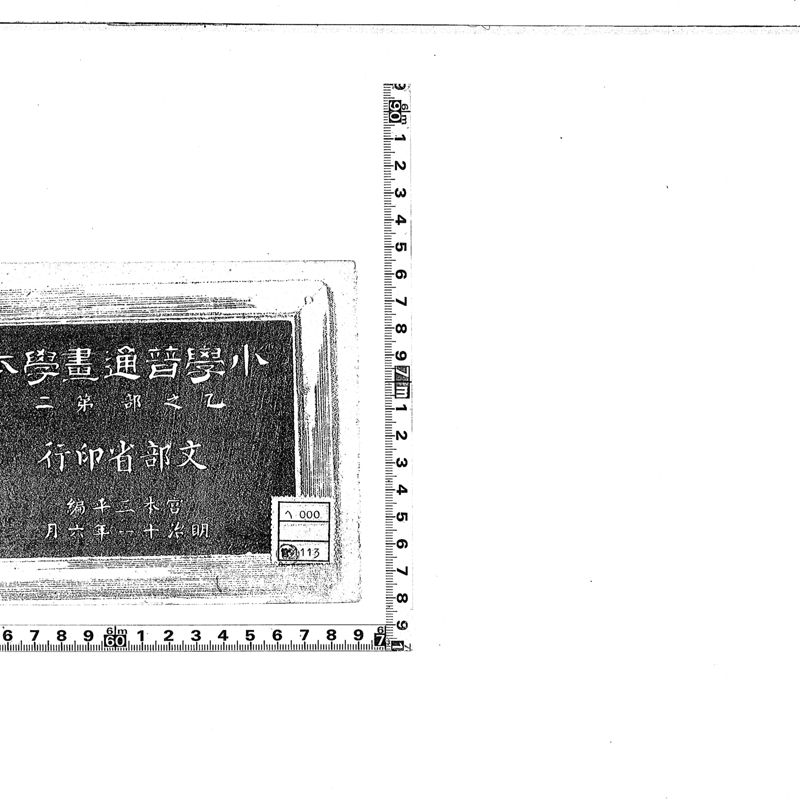 小學普通畫學本
乙之部第二
文部省印行
宮本三平編
明治十一年六月
へ 000
113
1 2 3 4 5 6 7 8 9
1 2 3 4 5 6 7 8 9
6 7 8 9 60 1 2 3 4 5 6 7 8 9